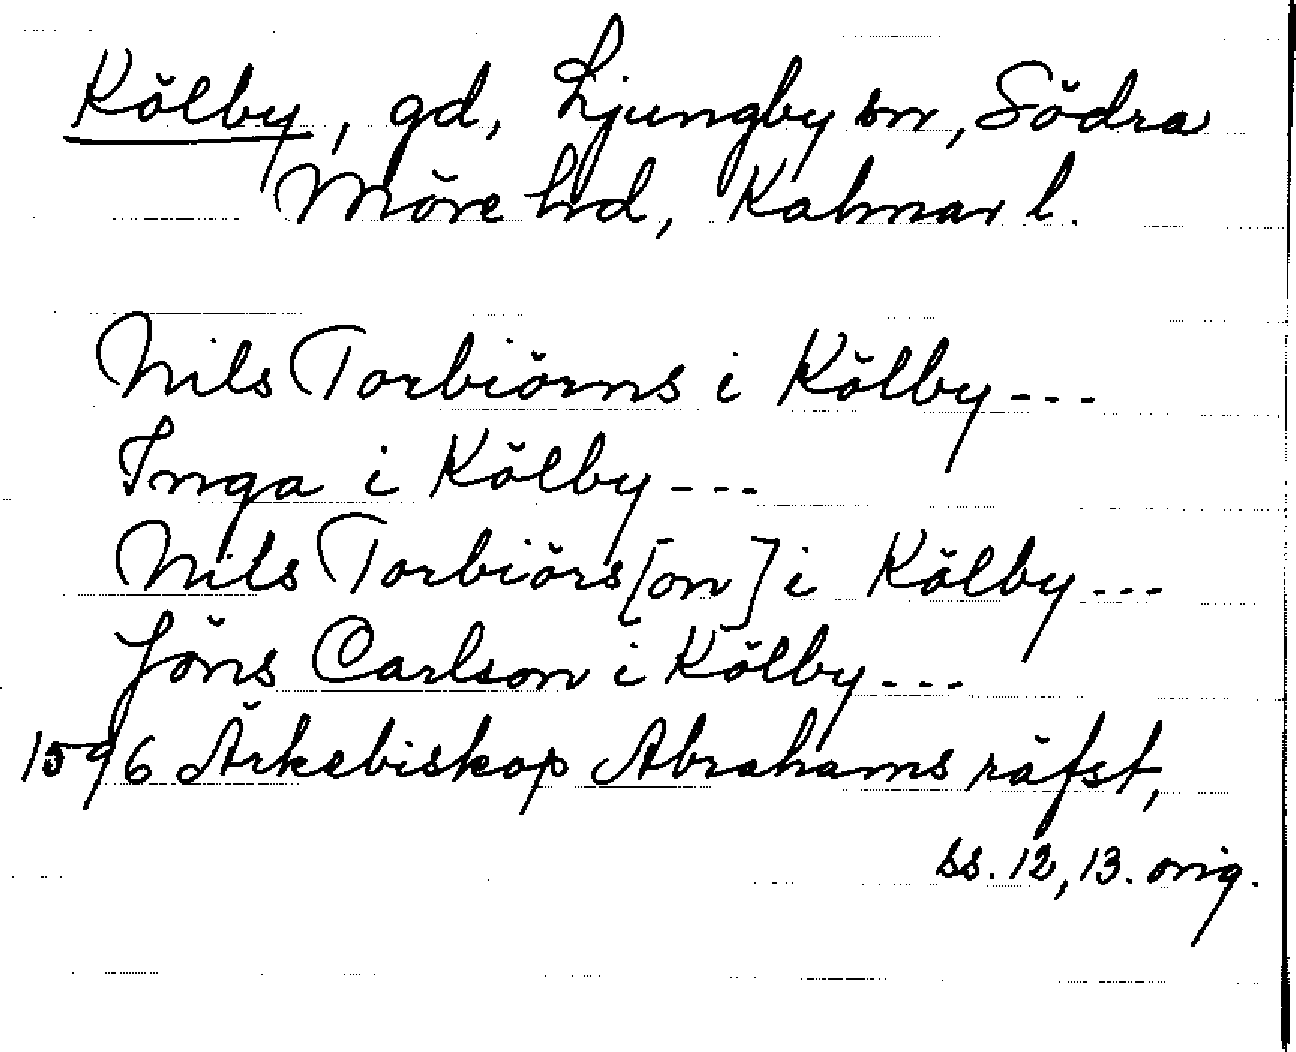 Kölby, gd, Ljungby sn, Södra
Möre hd, Kalmar l.
Nils Torbiörns i Kölby ---
Inga i Kölby ---
Nils Torbiörs[on] i Kölby ---
Jöns Carlson i Kölby ---
1596 Ärkebiskop Abrahams räfst,
ss. 12, 13. orig.